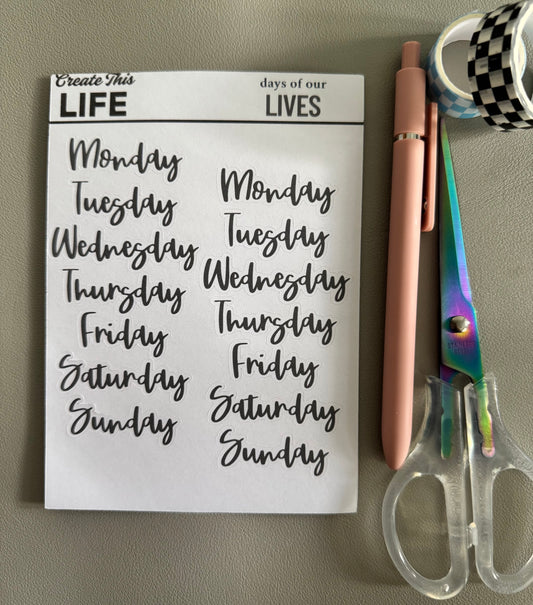 Create This
LIFE
days of our
LIVES
Monday
Tuesday
Wednesday
Thursday
Friday
Saturday
Sunday
Monday
Tuesday
Wednesday
Thursday
Friday
Saturday
Sunday